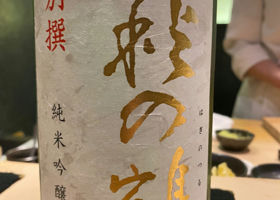 はぎのつる
萩の鶴
別撰
純米吟醸